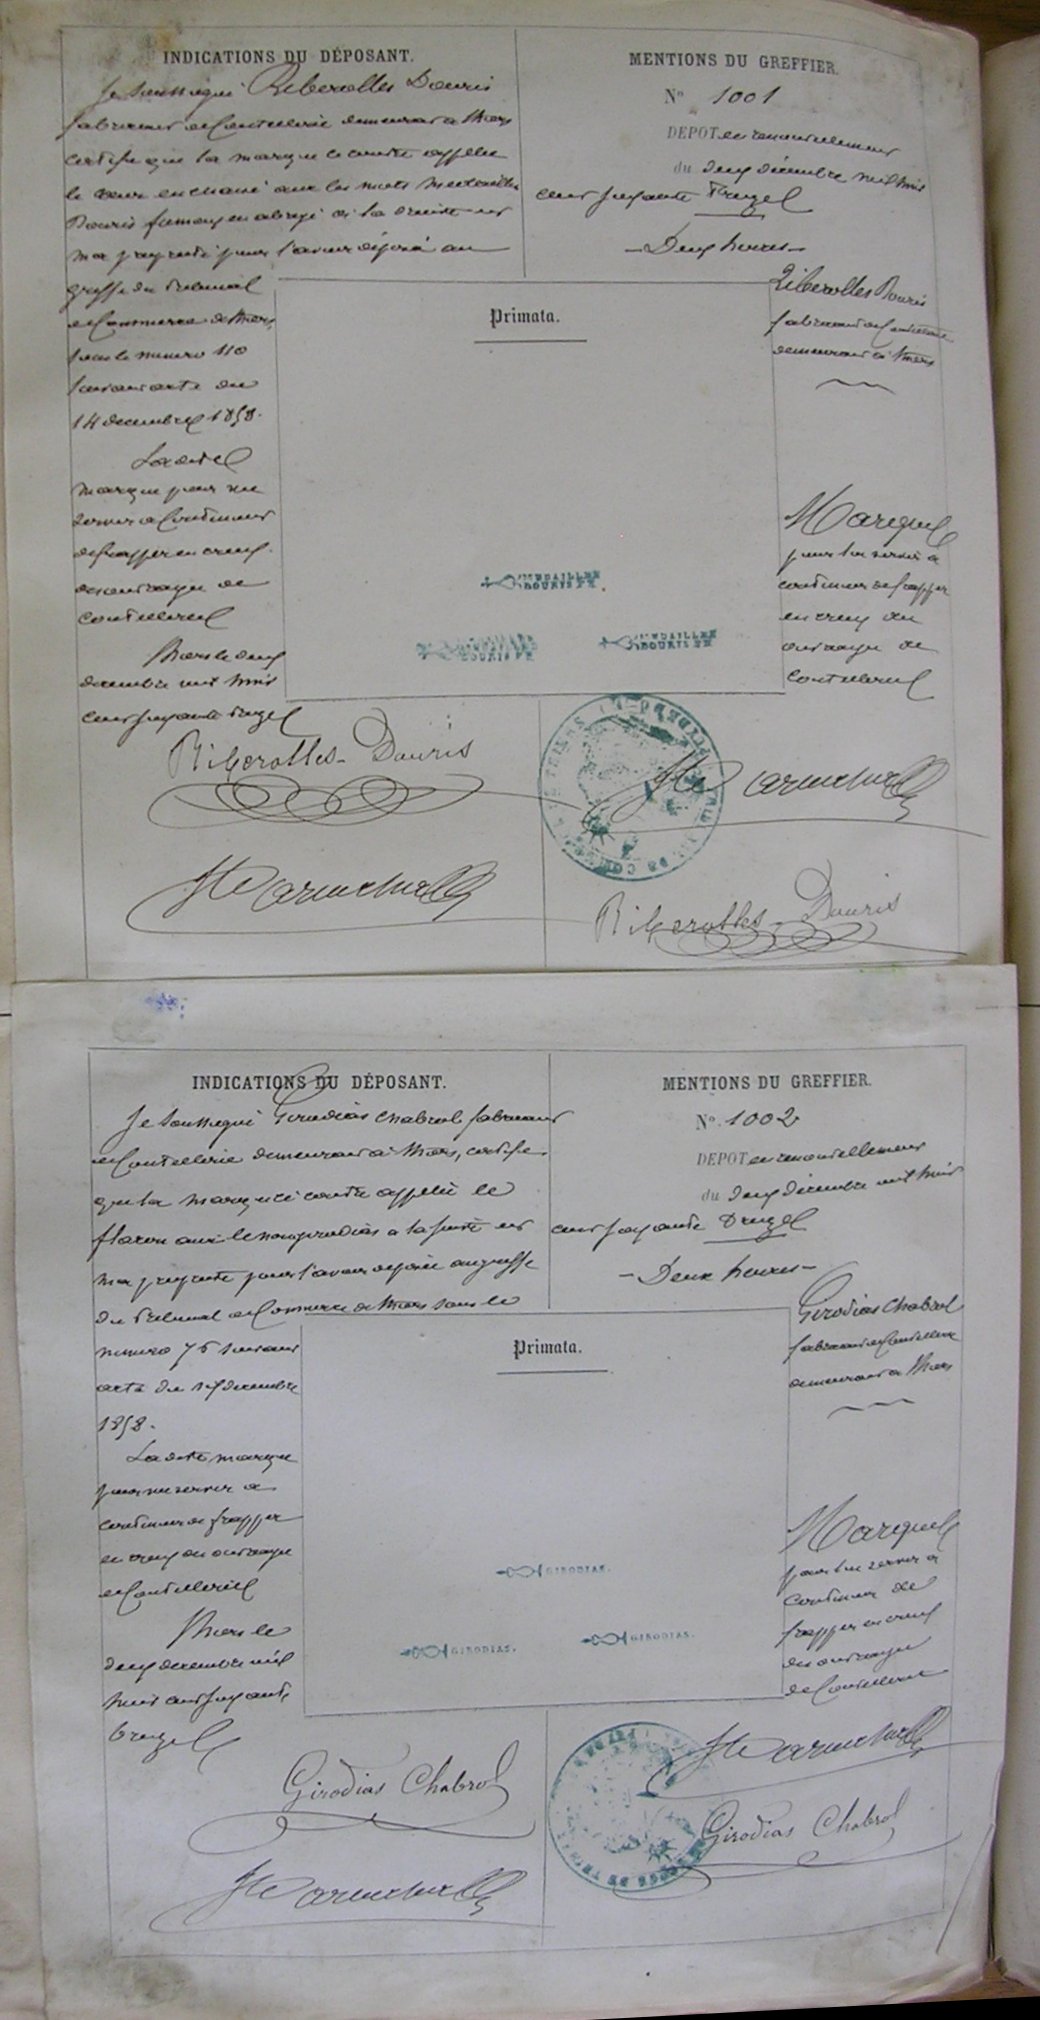 INDICATIONS DU DÉPOSANT.
Je soussigné Riberolles Douris
fabricant de Coutellerie demeurant à Thiers
certifie que la marque ci contre appelée
le cœur enchainé avec les mots Medailles
Douris fr en abrégé à la droite est
ma propriété pour l'avoir déposé au
greffe du Tribunal
de Commerce de Thiers
sous le numero 110
suivant acte du
14 decembre 1858.
Ladite
marque pour me
servir a Continuer
de frapper en creux
des ouvrages de
coutellerie
Thiers le deux
decembre mil huit
cent soixante treize
Riberolles-Douris
MENTIONS DU GREFFIER.
N° 1001
DEPOT en renouvellement
du deux décembre mil huit
cent soixante treize
- Deux heures -
Riberolles Douris
fabricant de Coutellerie
demeurant à Thiers
Primata.
Marque
pour lui servir à
continuer de frapper
en creux des
ouvrages de
Coutellerie
MEDAILLES
DOURIS FR
MEDAILLES
DOURIS FR
MEDAILLES
DOURIS FR
Riberolles-Douris
INDICATIONS DU DÉPOSANT.
Je soussigné Girodias Chabrol fabricant
de Coutellerie demeurant à Thiers, certifie
que la marque ci contre appelée le
flacon avec le nom girodias a la suite est
ma propriété pour l'avoir déposée au greffe
du Tribunal de Commerce de Thiers sous le
numero 76 suivant
acte du decembre
1858.
Ladite marque
pour me servir a
continuer de frapper
en creux des ouvrages
de Coutellerie
Thiers le
deux decembre mil
huit cent soixante
treize
Girodias Chabrol
MENTIONS DU GREFFIER.
N° 1002
DEPOT en renouvellement
du deux décembre mil huit
cent soixante treize
- Deux heures -
Girodias Chabrol
fabricant de Coutellerie
demeurant à Thiers
Primata.
Marque
pour lui servir à
Continuer de
frapper en creux
des ouvrages
de Coutellerie
GIRODIAS.
GIRODIAS.
GIRODIAS.
Girodias Chabrol